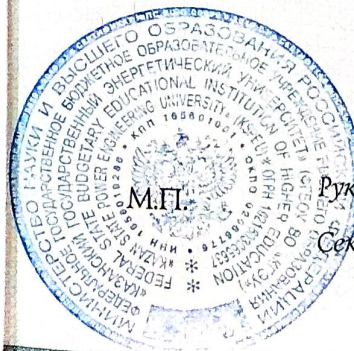 МИНИСТЕРСТВО НАУКИ И ВЫСШЕГО ОБРАЗОВАНИЯ РОССИЙСКОЙ ФЕДЕРАЦИИ
ФЕДЕРАЛЬНОЕ ГОСУДАРСТВЕННОЕ БЮДЖЕТНОЕ ОБРАЗОВАТЕЛЬНОЕ УЧРЕЖДЕНИЕ ВЫСШЕГО ОБРАЗОВАНИЯ
«КАЗАНСКИЙ ГОСУДАРСТВЕННЫЙ ЭНЕРГЕТИЧЕСКИЙ УНИВЕРСИТЕТ» (ФГБОУ ВО «КГЭУ»)
FEDERAL STATE BUDGETARY EDUCATIONAL INSTITUTION OF HIGHER EDUCATION
«KAZAN STATE POWER ENGINEERING UNIVERSITY» (KSPEU)
ОГРН
ИНН
КПП 165601001
ОКПО
М.П.
Рук
Сек